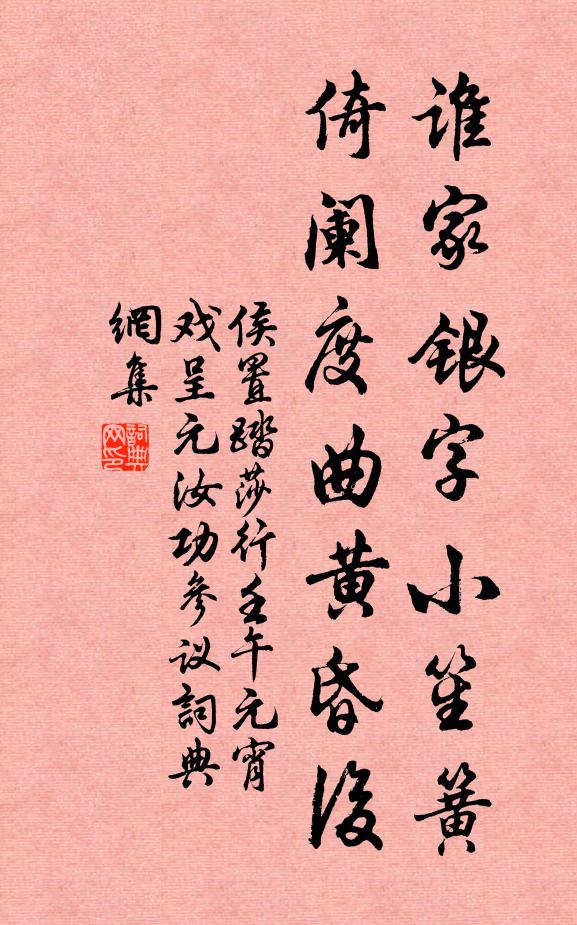 谁家银字小笙簧
倚阑度曲黄昏後
侯置踏莎行壬午元宵
戏呈元汝功参议詞典
網集
詞典
网印